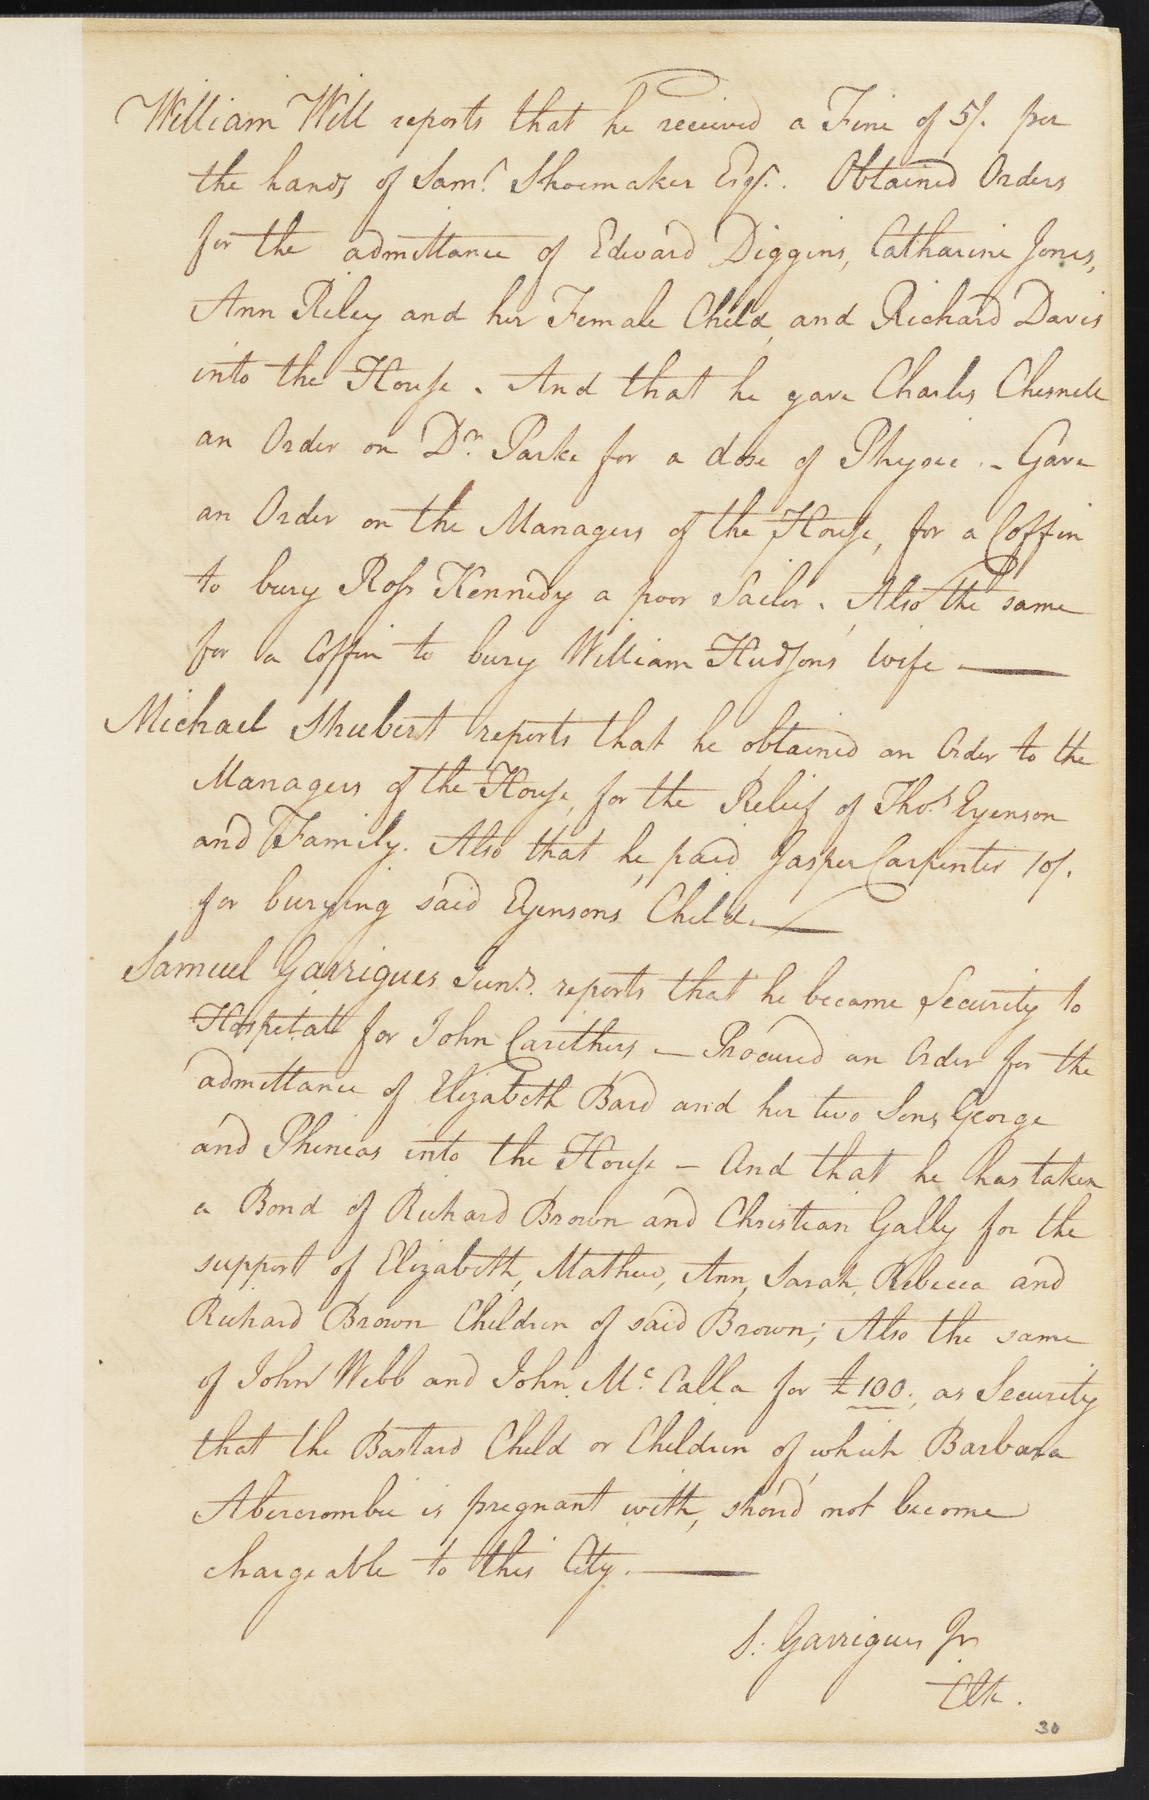 William Will reports that he received a Fine of 5/. per
the hands of Sam.l Shoemaker Esq.r. Obtained Orders
for the admittance of Edward Diggins, Catharine Jones,
Ann Riley and her Female Child, and Richard Davis
into the House. And that he gave Charles Chesnell
an Order on D.r Parke for a dose of Physic. - Gave
an Order on the Managers of the House, for a Coffin
to bury Ross Kennedy a poor Sailor. Also the same
for a Coffin to bury William Hudsons wife —
Michael Shubert reports that he obtained an Order to the
Managers of the House, for the Relief of Tho.s Eyenson
and Family. Also that he paid Jasper Carpenter 10/.
for burying said Eyensons Child. —
Samuel Garrigues Jun.r. reports that he became Security to
Hospitall for John Carithers — Procured an Order for the
admittance of Elizabeth Bard and her two Sons George
and Phineas into the House — And that he has taken
a Bond of Richard Brown and Christian Gally for the
support of Elizabeth, Mathew, Ann, Sarah, Rebecca and
Richard Brown Children of said Brown; Also the same
of John Webb and John M.c Calla for £100., as Security
that the Bastard Child or Children of which Barbara
Abercrombie is pregnant with, shou'd not become
chargeable to this City. —
S. Garrigues Jr
Clk.
30